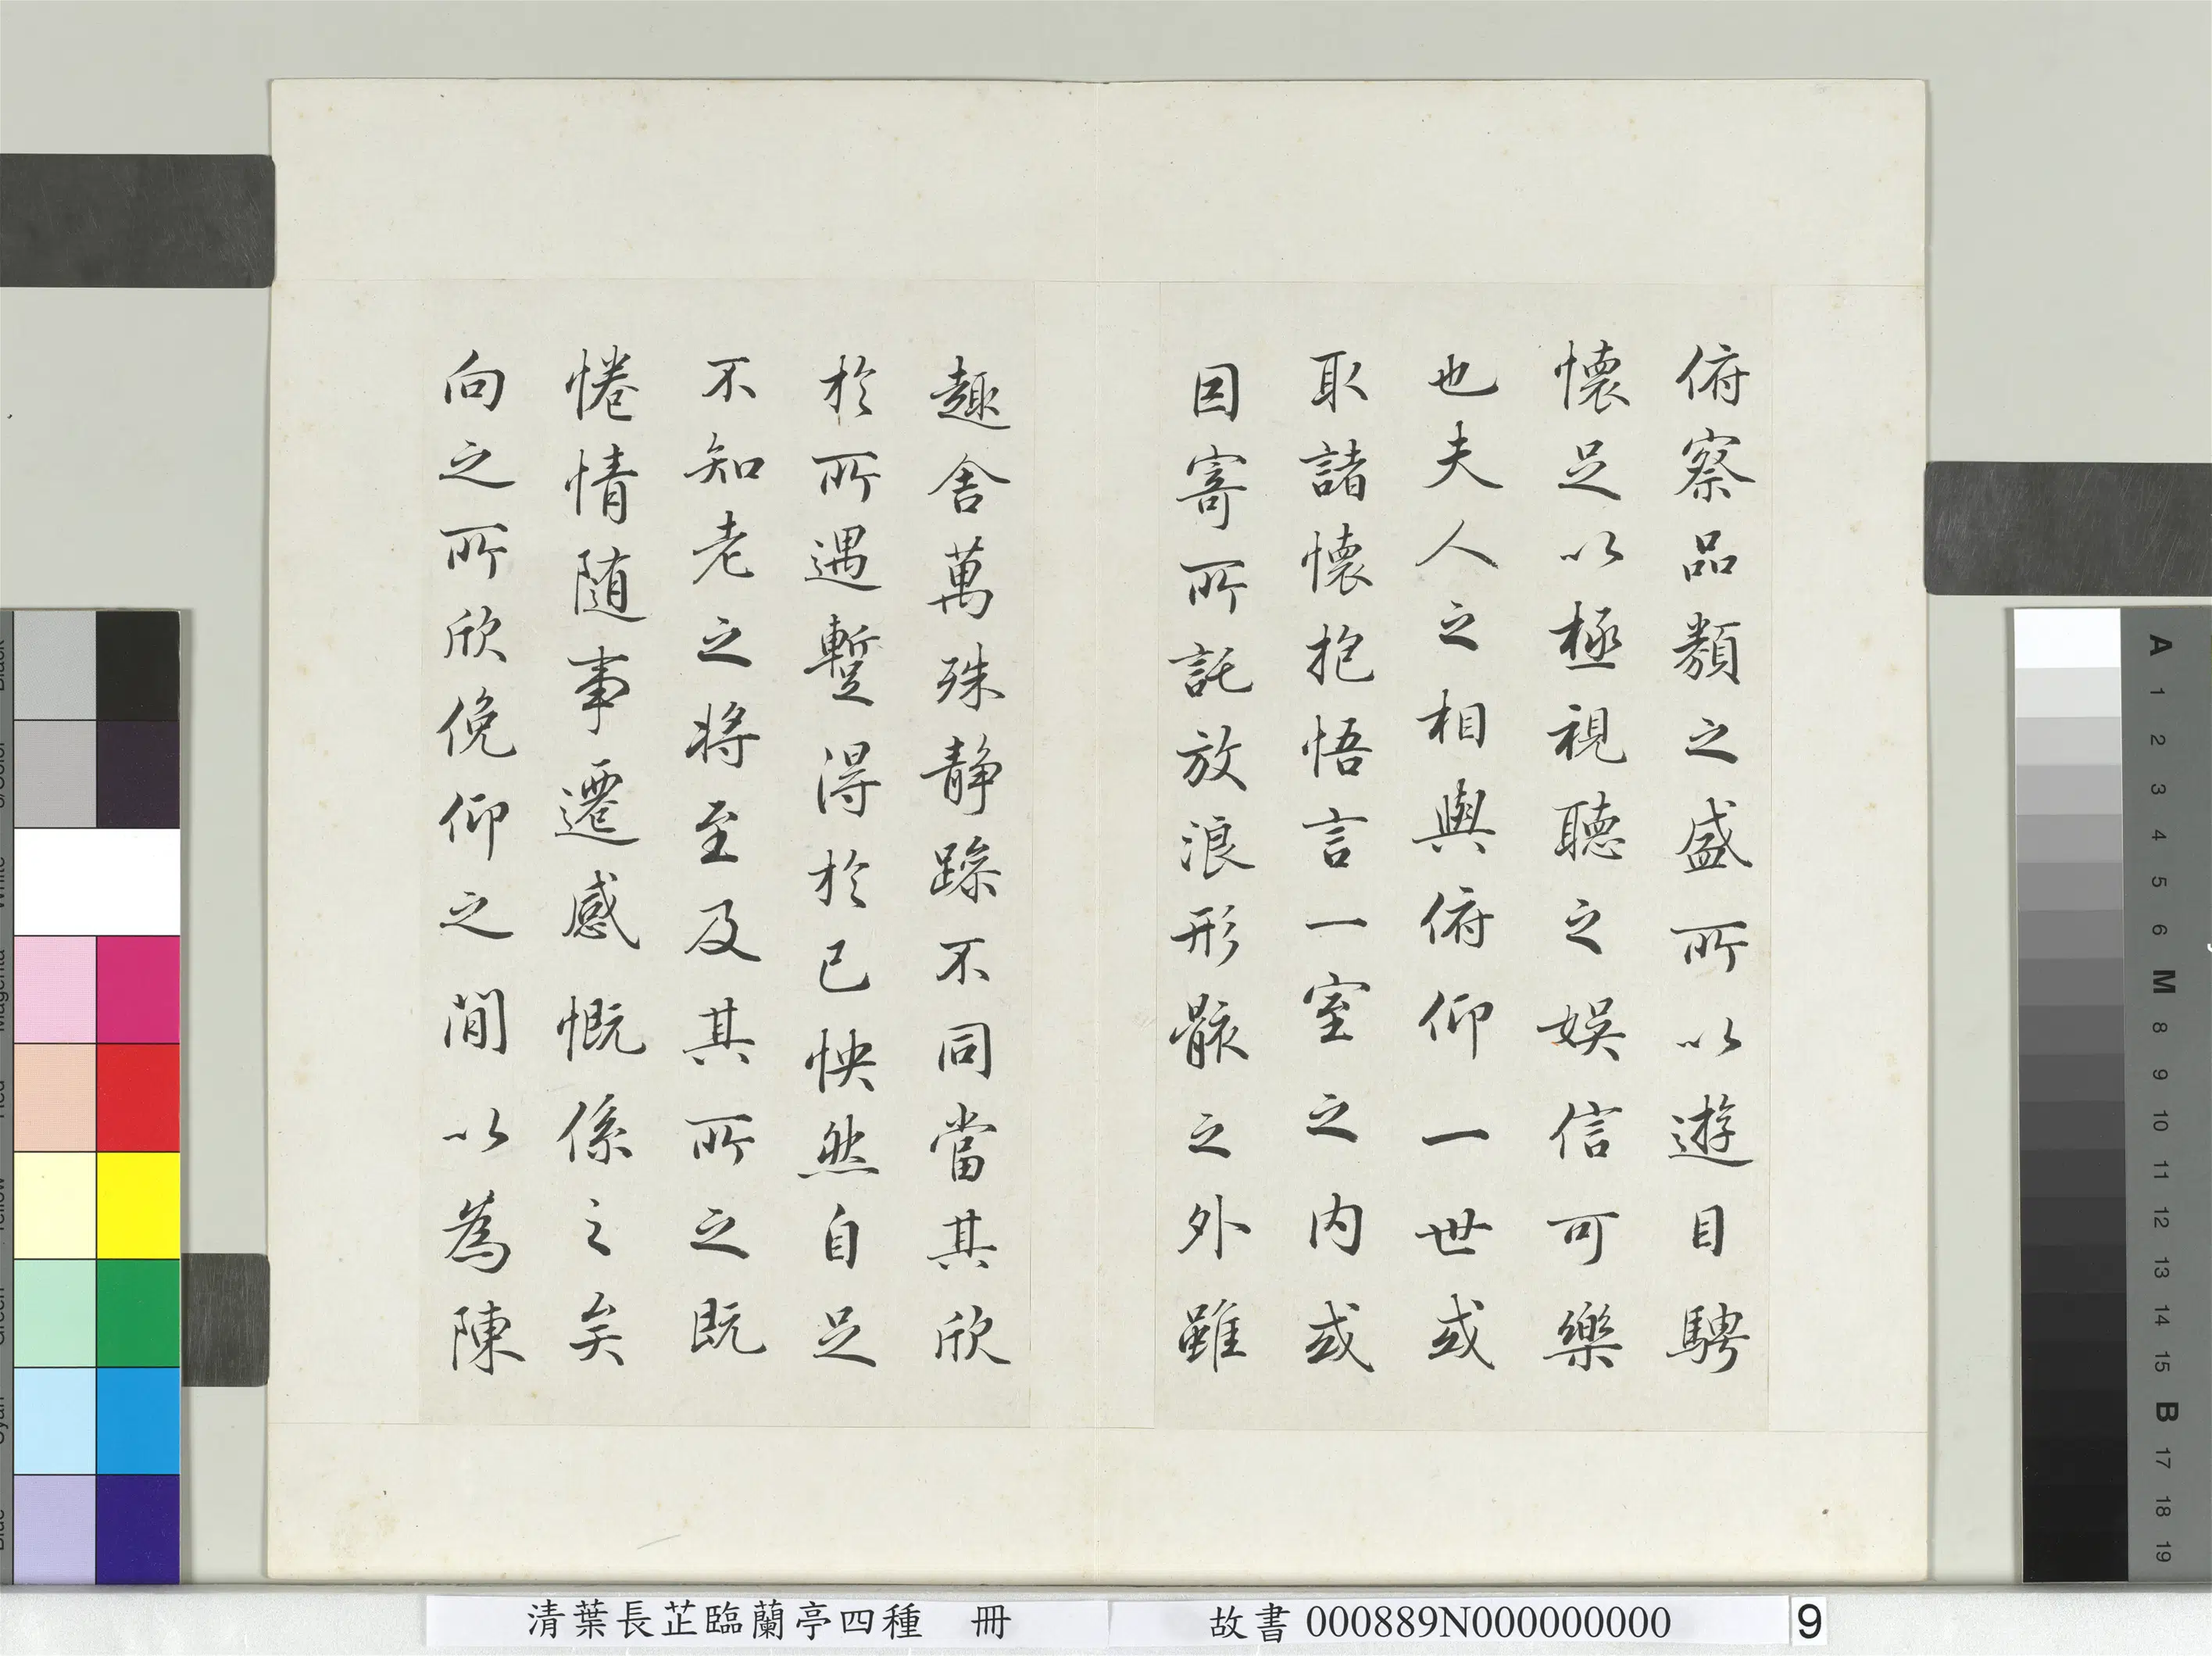 俯察品類之盛所以遊目騁
懷足以極視聽之娛信可樂
也夫人之相與俯仰一世或
取諸懷抱悟言一室之內或
因寄所託放浪形骸之外雖
趣舍萬殊靜躁不同當其欣
於所遇暫得於己怏然自足
不知老之將至及其所之既
惓情隨事遷感慨係之矣
向之所欣俛仰之閒以為陳
清葉長芷臨蘭亭四種 冊
故書 000889N000000000
9
A
1
2
3
4
5
6
M
8
9
10
11
12
13
14
15
B
17
18
19